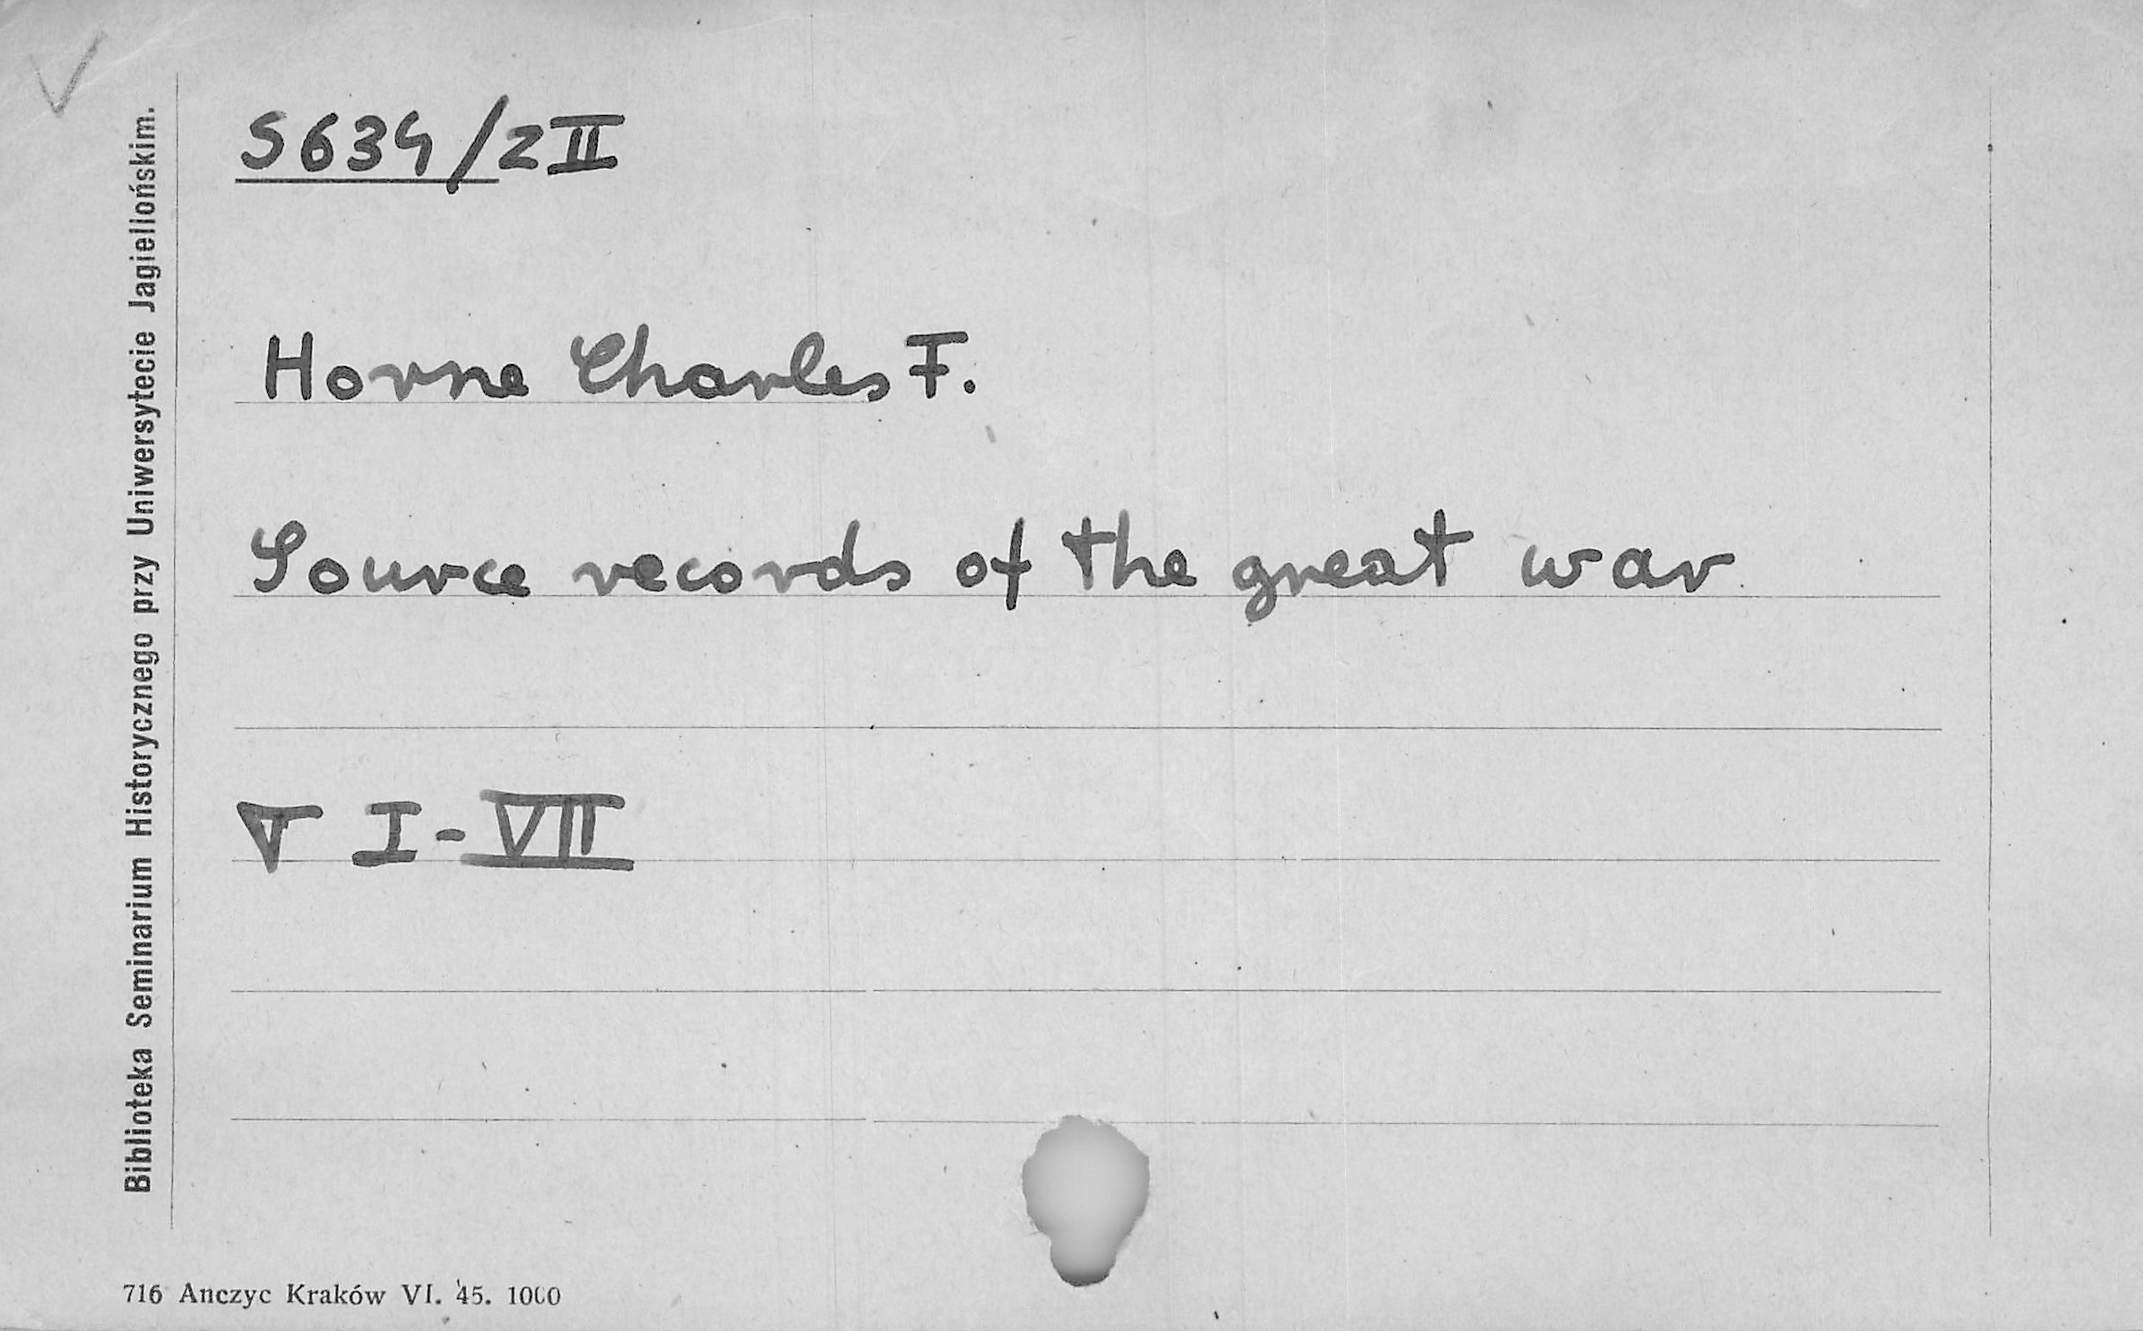 5634/z II
Horne Charles F.
Source records of the great war
V I-VII
Biblioteka Seminarium Historycznego przy Uniwersytecie Jagiellońskim.
716 Anczyc Kraków VI. 45. 1000